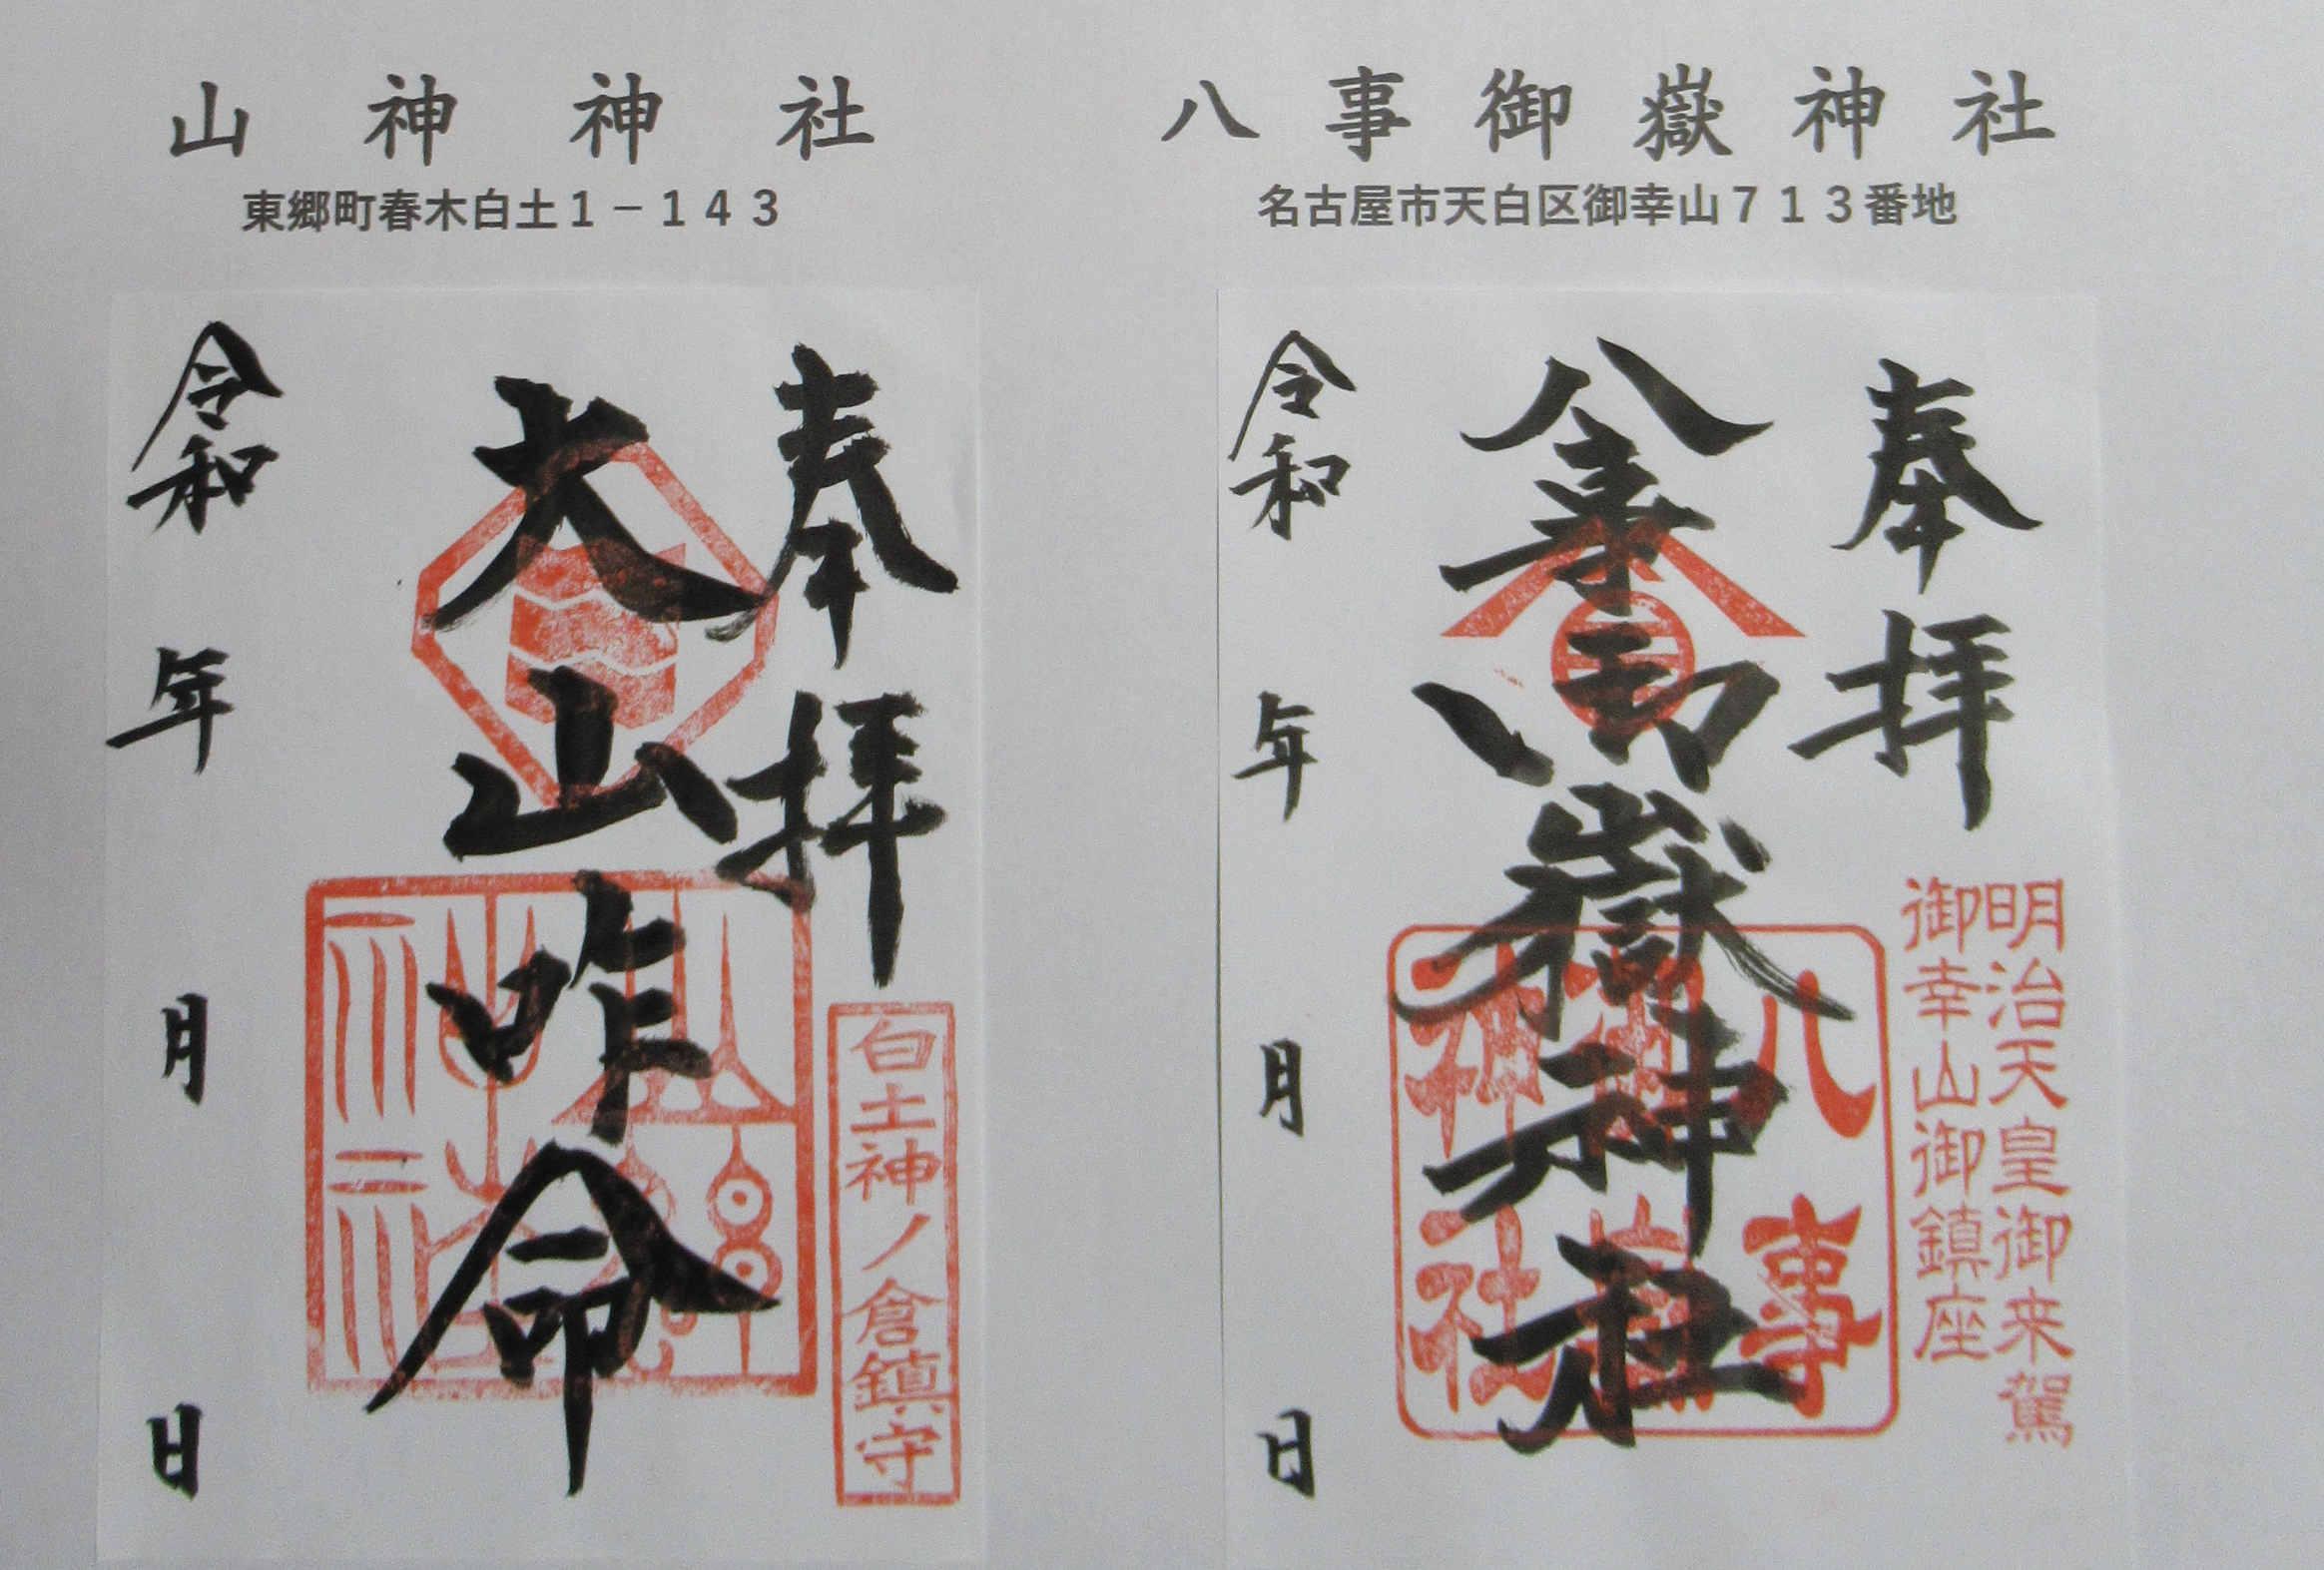 山神神社
東郷町春木白土1－143
奉拝
大山咋命
令和 年 月 日
白土神ノ倉鎮守
八事御嶽神社
名古屋市天白区御幸山713番地
奉拝
八事御嶽神社
令和 年 月 日
明治天皇御来駕
御幸山御鎮座
八事
御嶽
神社